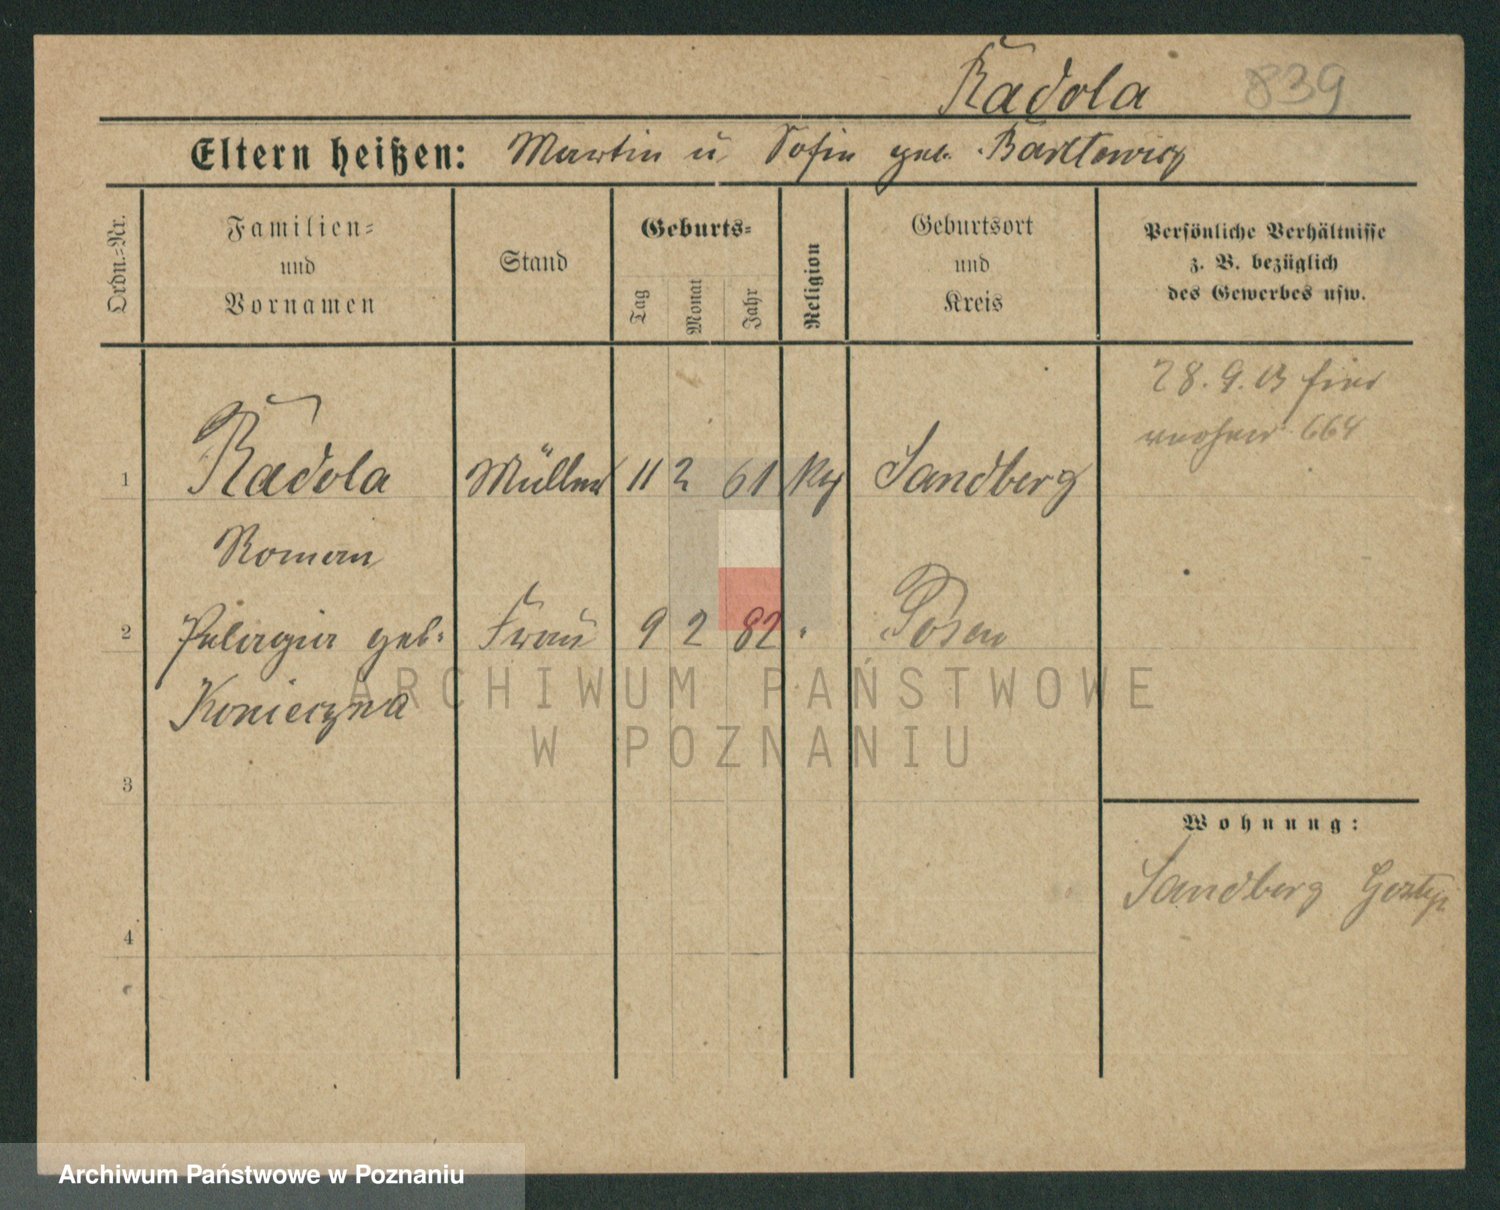 Radola 839
Eltern heißen: Martin u Sofie geb. Bartlewicz
Ordn.=Nr.
Familien=
und
Vornamen
Stand
Geburts=
Tag
Monat
Jahr
Religion
Geburtsort
und
Kreis
Persönliche Verhältnisse
z. B. bezüglich
des Gewerbes usw.
28. 9. 13 hier
664
1 Radola Müller 11 2 61 Sandberg
Roman
2 Pelagia geb. Frau 9 2 82 " Posen
Konieczna
ARCHIWUM PAŃSTWOWE
W POZNANIU
3
Wohnung:
Sandberg Gostyn
4
Archiwum Państwowe w Poznaniu